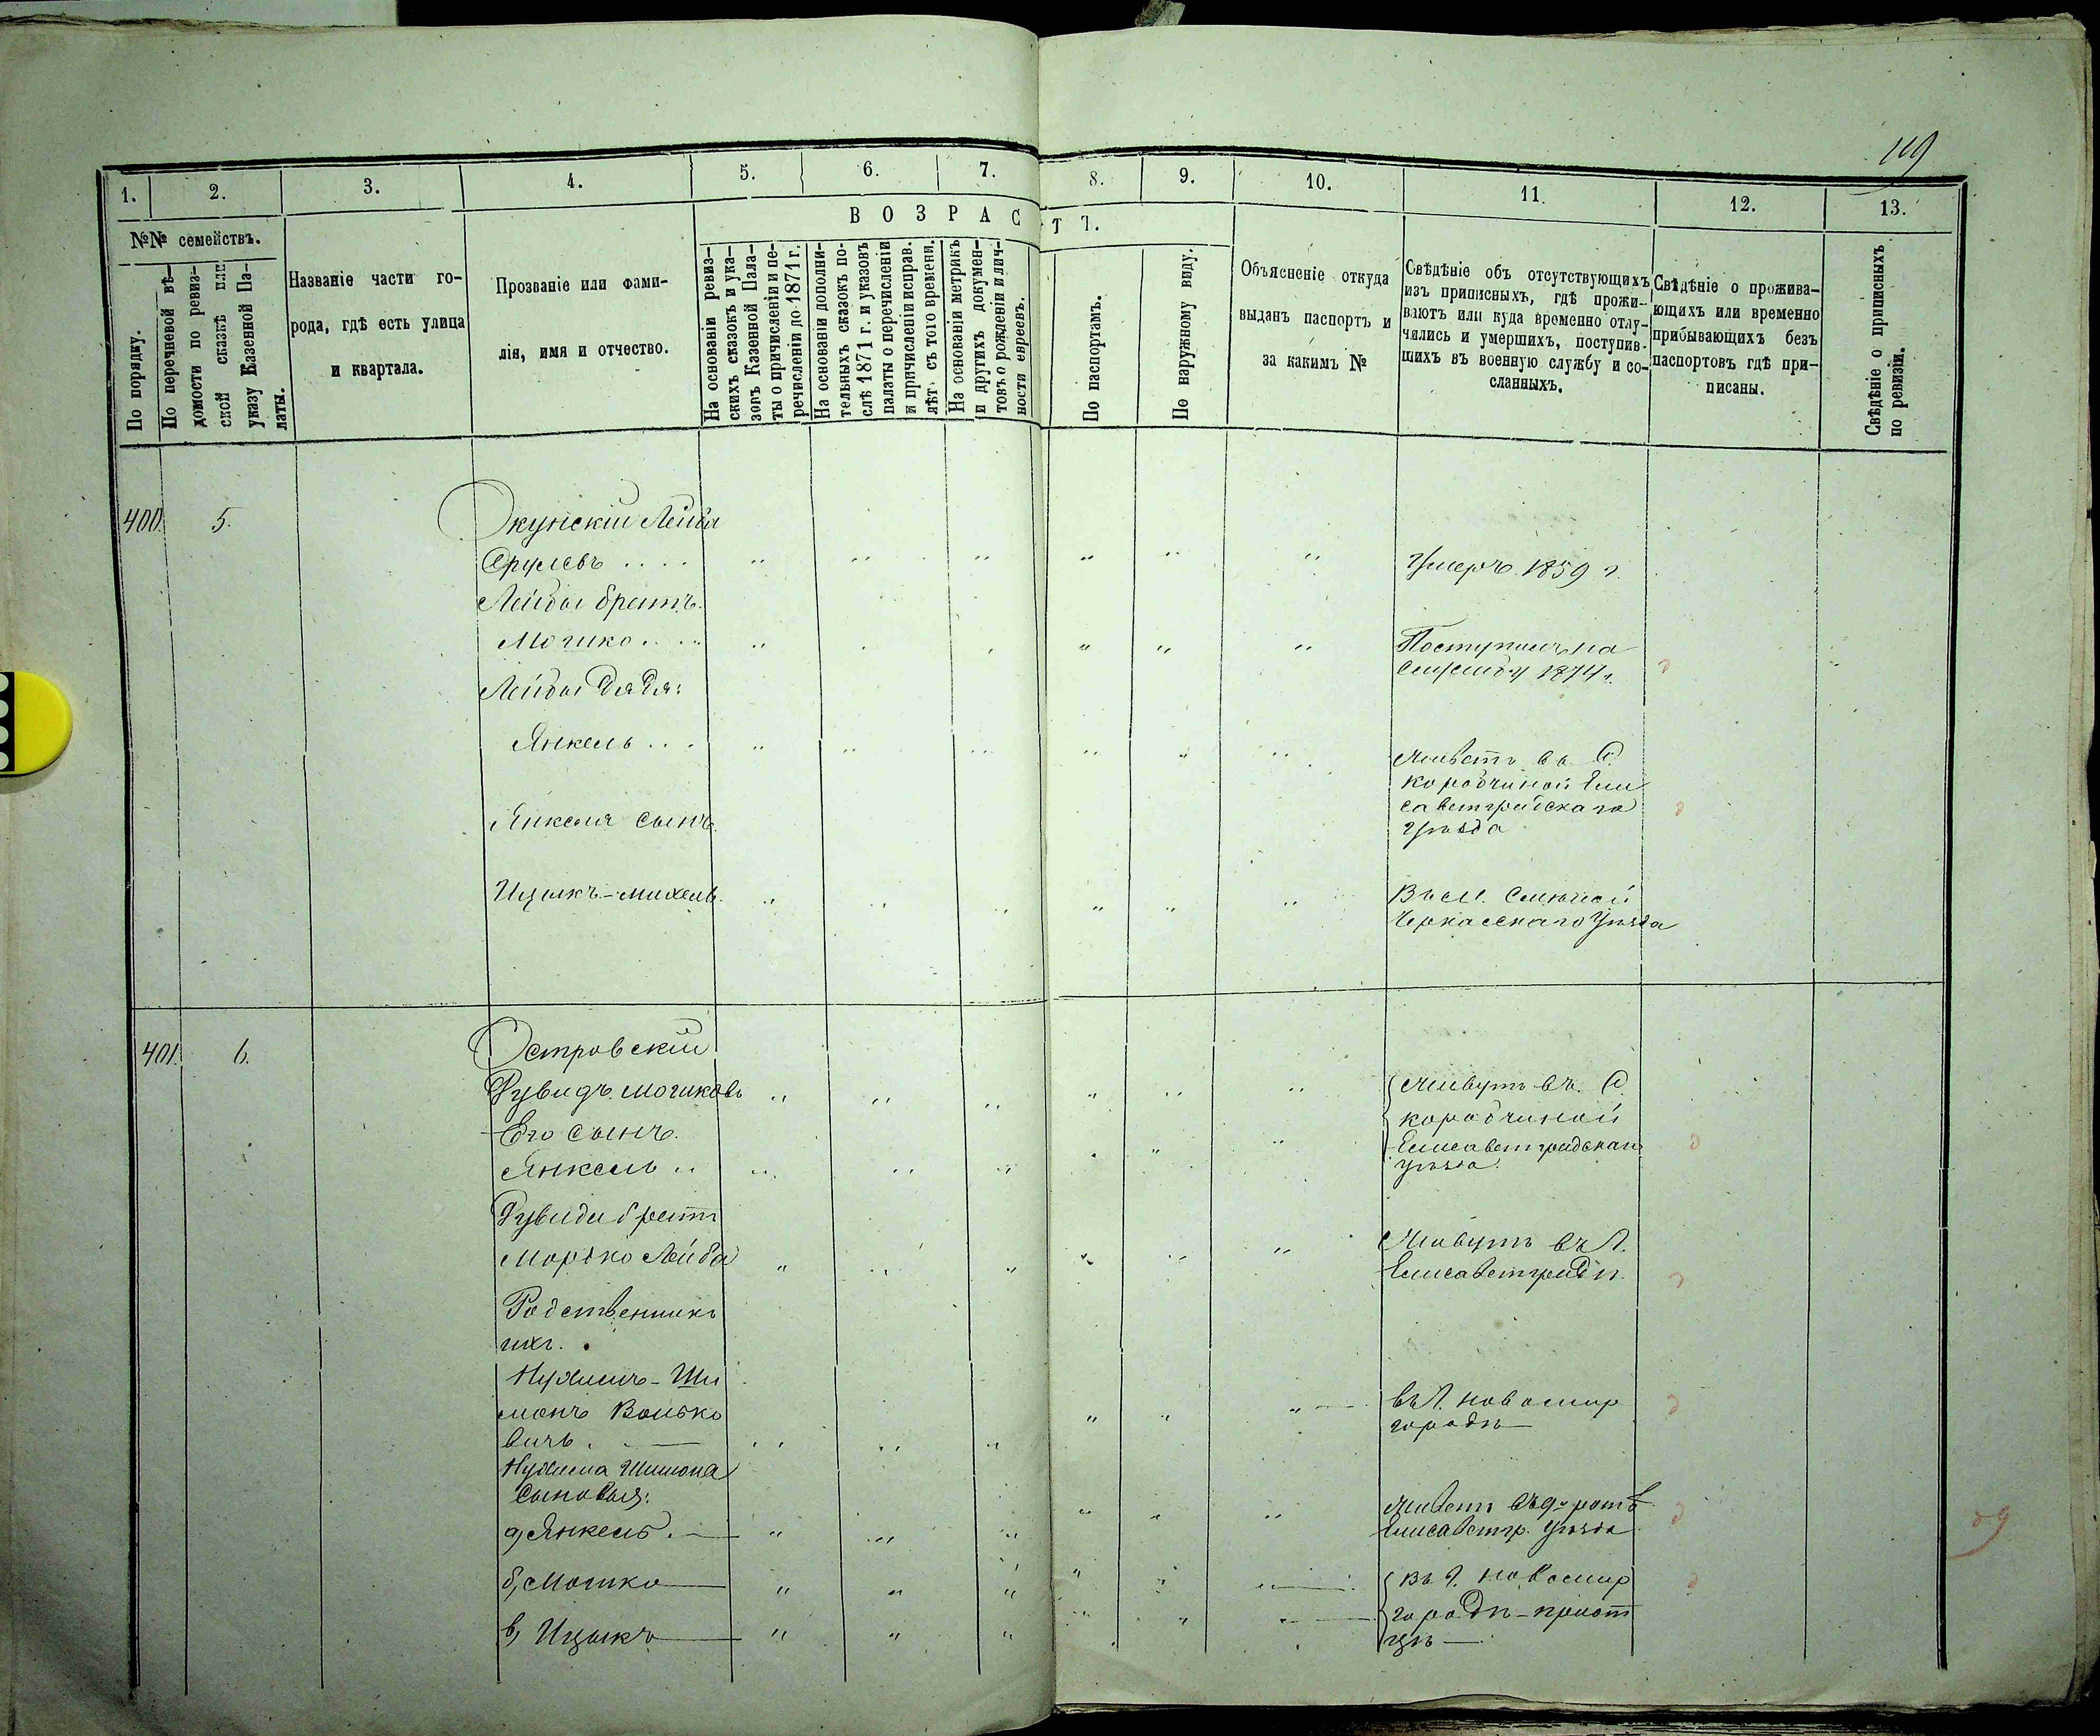 119
1. 2. 3. 4. 5. 6. 7. 8. 9. 10. 11. 12. 13.
№№ семействъ.
ВОЗРАСТЪ.
По порядку.
По перечневой вѣ-
домости по ревиз-
ской сказкѣ или
указу Казенной Па-
латы.
Названіе части го-
рода, гдѣ есть улица
и квартала.
Прозваніе или фами-
лія, имя и отчество.
На основаніи ревиз-
скихъ сказокъ и ука-
зовъ Казенной Пала-
ты о причисленіи и пе-
речисленіи до 1871 г.
На основаніи дополни-
тельныхъ сказокъ по-
слѣ 1871 г. и указовъ
палаты о перечисленіи
и причисленіи исправ.
лѣтъ съ того времени.
На основаніи метрикъ
и другихъ докумен-
товъ о рожденіи и лич-
ности евреевъ.
По паспортамъ.
По наружному виду.
Объясненіе откуда
выданъ паспортъ и
за какимъ №
Свѣдѣніе объ отсутствующихъ
изъ приписныхъ, гдѣ прожи-
ваютъ или куда временно отлу-
чились и умершихъ, поступив-
шихъ въ военную службу и со-
сланныхъ.
Свѣдѣніе о прожива-
ющихъ или временно
прибывающихъ безъ
паспортовъ гдѣ при-
писаны.
Свѣдѣніе о приписныхъ
по ревизіи.
400. 5. Окунскій Лейба
Срулевъ . . . . Умеръ 1859 г.
Лейбы братъ.
Мошко . . . Поступилъ на
службу 1874 г.
Лейбы дядя:
Янкель . . . Живетъ въ С.
коробчиной Ели
саветградскаго
уѣзда
Янкеля сынъ.
Ицыкъ-Михель. Въ м. Смелой
Черкасскаго Уѣзда
401. 6. Островскій
Рувидъ Мошковъ Живутъ въ С.
коробчиной
Елисаветградскаго
уѣзда.
Его сынъ.
Янкель ..
Рувида братъ
Моръко Лейба Живутъ въ Г.
Елисаветградѣ.
Родственникъ
ихъ.
Нухимъ-Ши
монъ Волько
вичъ. въ Г. Новомир
городѣ
Нухима Шимона
сыновья:
а, Янкель. Живетъ въ 9й ротѣ
Елисаветгр. уѣзда
б, Мошко въ Г. Новомир
городѣ
в, Ицыкъ